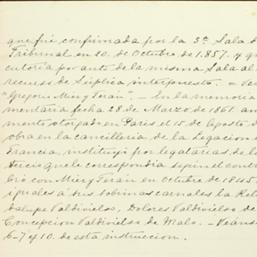 que fué confirmada por la 3ª Sala d
Tribunal en 20. de Octubre de 1.857. y q
cutoria por auto de la misma Sala al
recurso de Súplica interpuesto. = Ve
"Gregorio Mier y Terán". - En la memoria
mentaria fecha 28. de Marzo de 1861. an
mento otorgado en Paris el 15. de Agosto d
obra en la cancilleria de la Legacion
Francia, instituyó por legatarias de la
tercio que le correspondia segun el contr
bró con Mier y Terán en Octubre de 1845,
iguales á sus sobrinas carnales la Re
dalupe Valdivielso, Dolores Valdivielso de
Concepcion Valdivielso de Malo. - Veans
6-7 y 10. de esta instruccion.